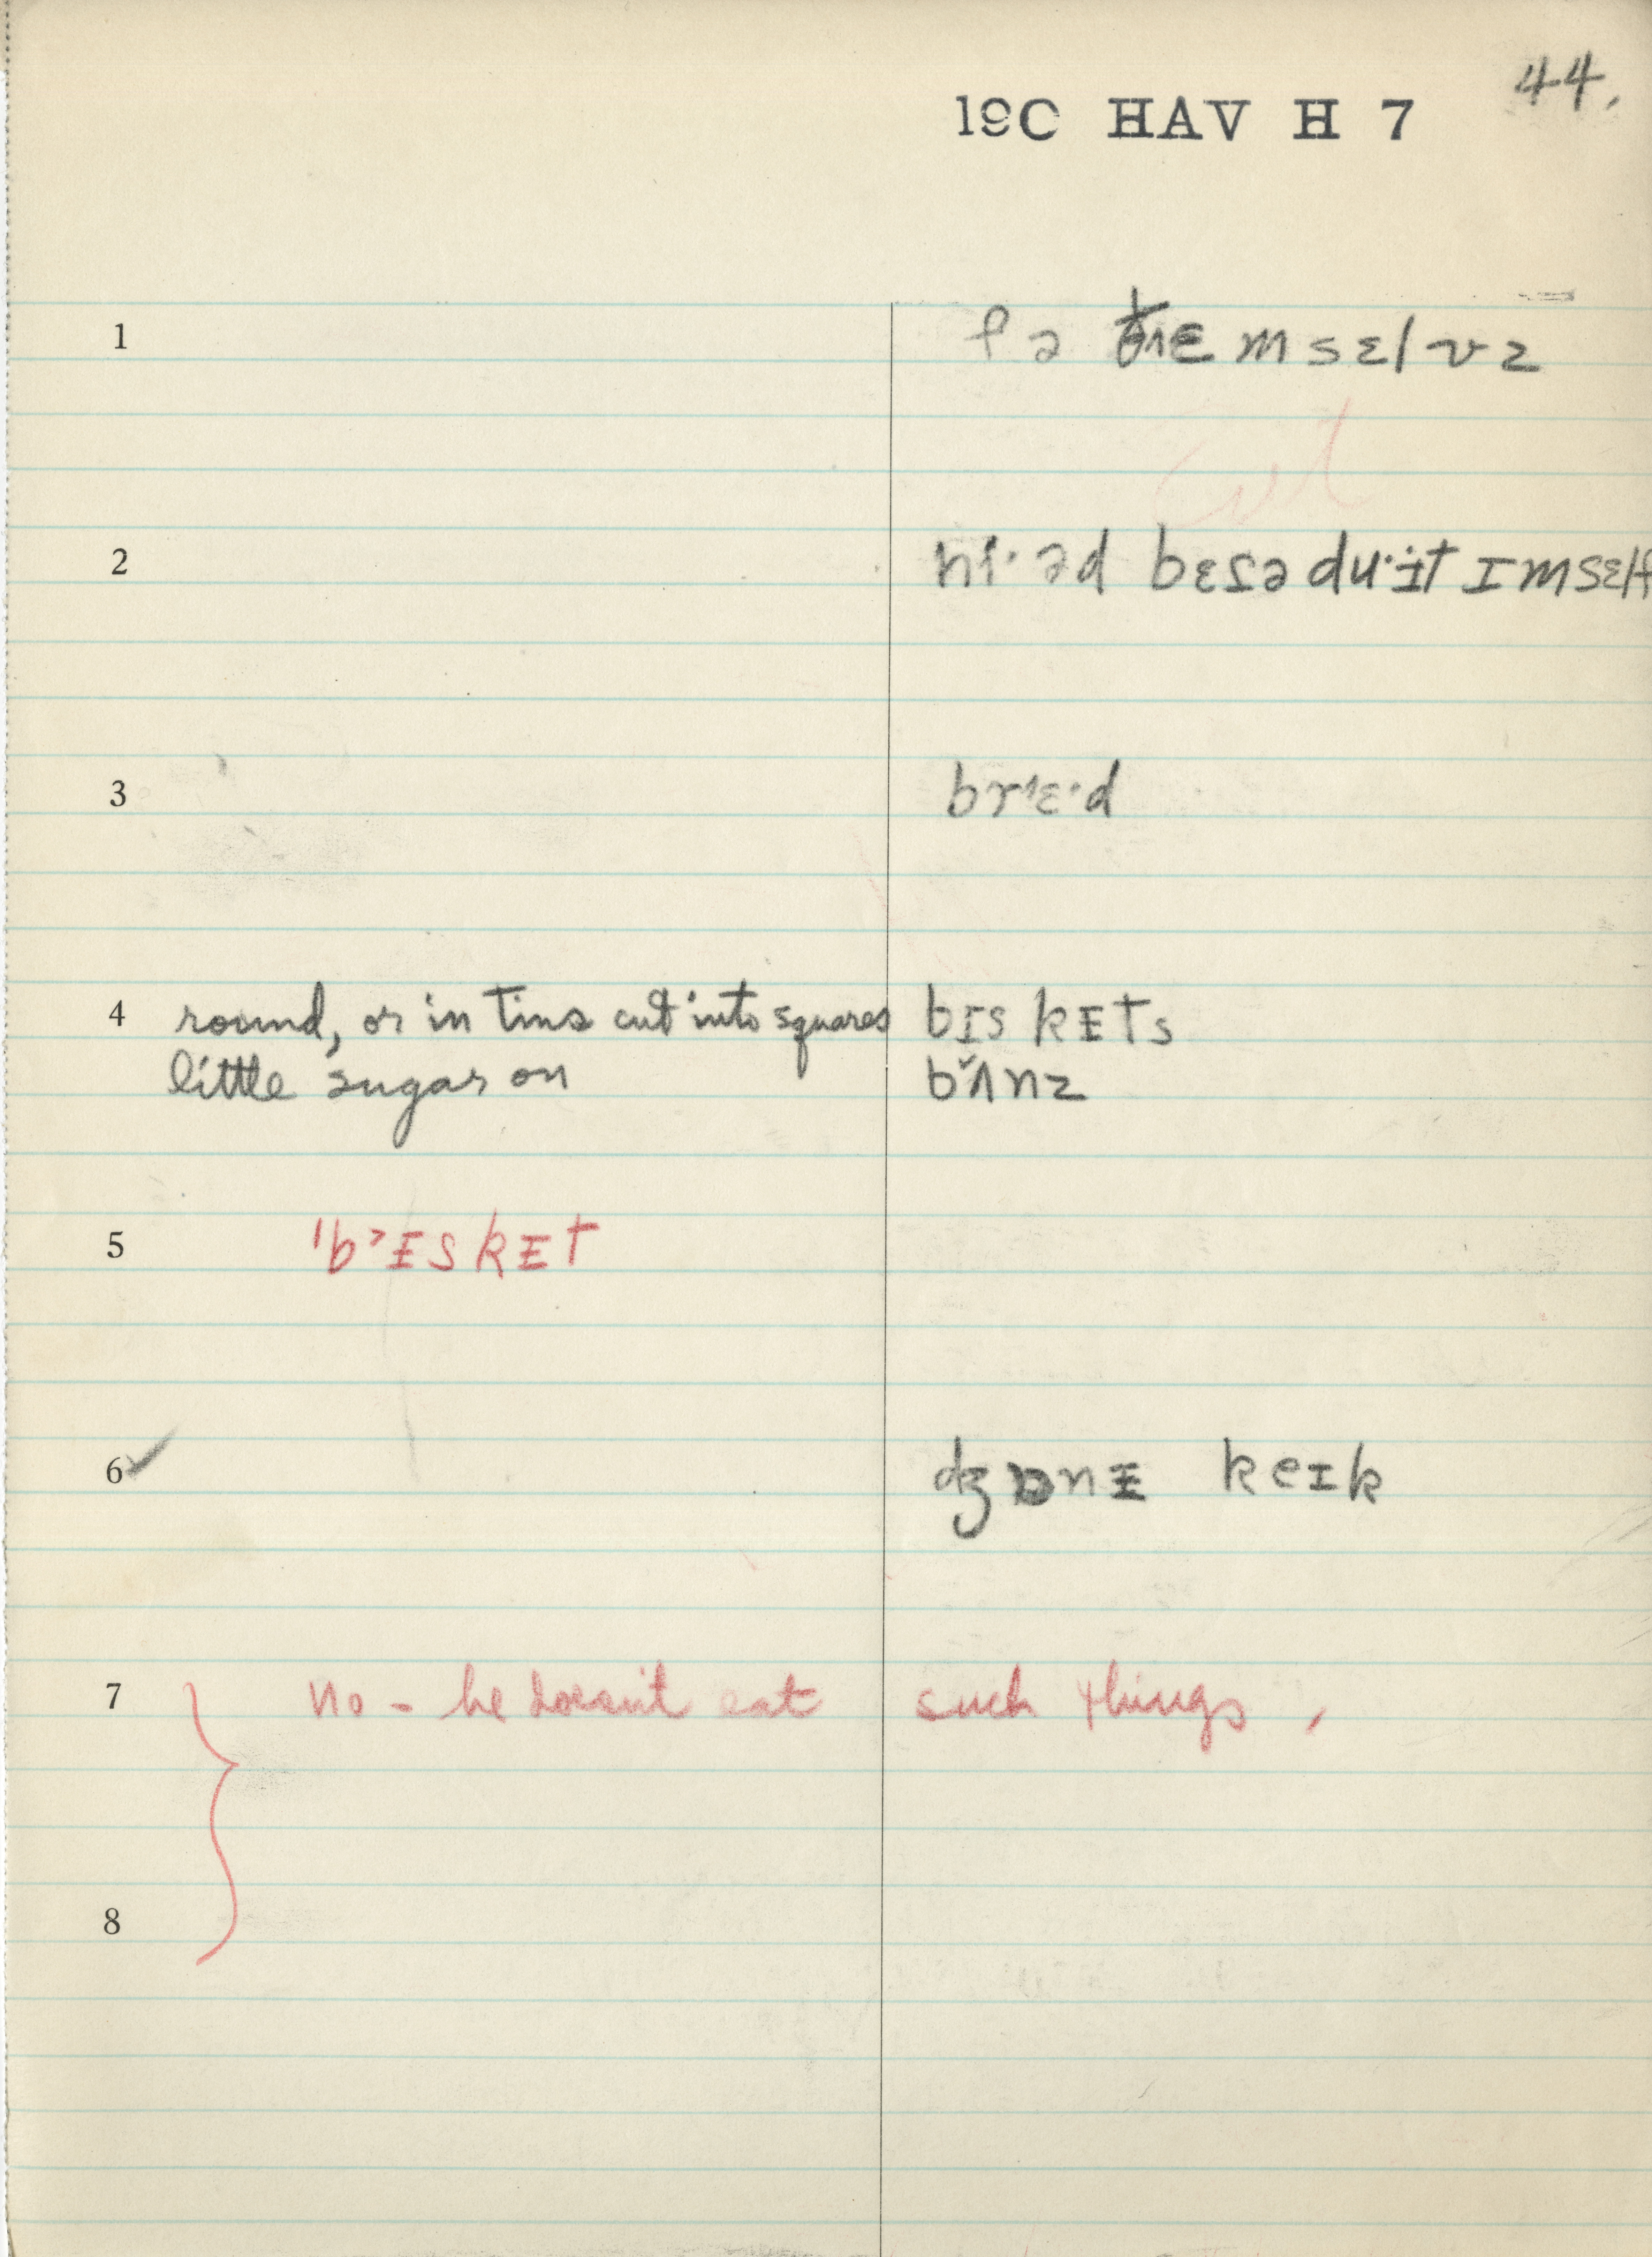 44.
19C HAV H 7
1 fə ðɛmsɛlvz
2 hi· əd bɛsə du·ɪt ɪmsɛlf
3 brɛ·d
4 round, or in tins cut into squares bɪskɛts
little sugar on bʌnz
5 'b>ɪskɛt
6✓ ʤɒnɪ keɪk
7 no - he doesn't eat such things,
8